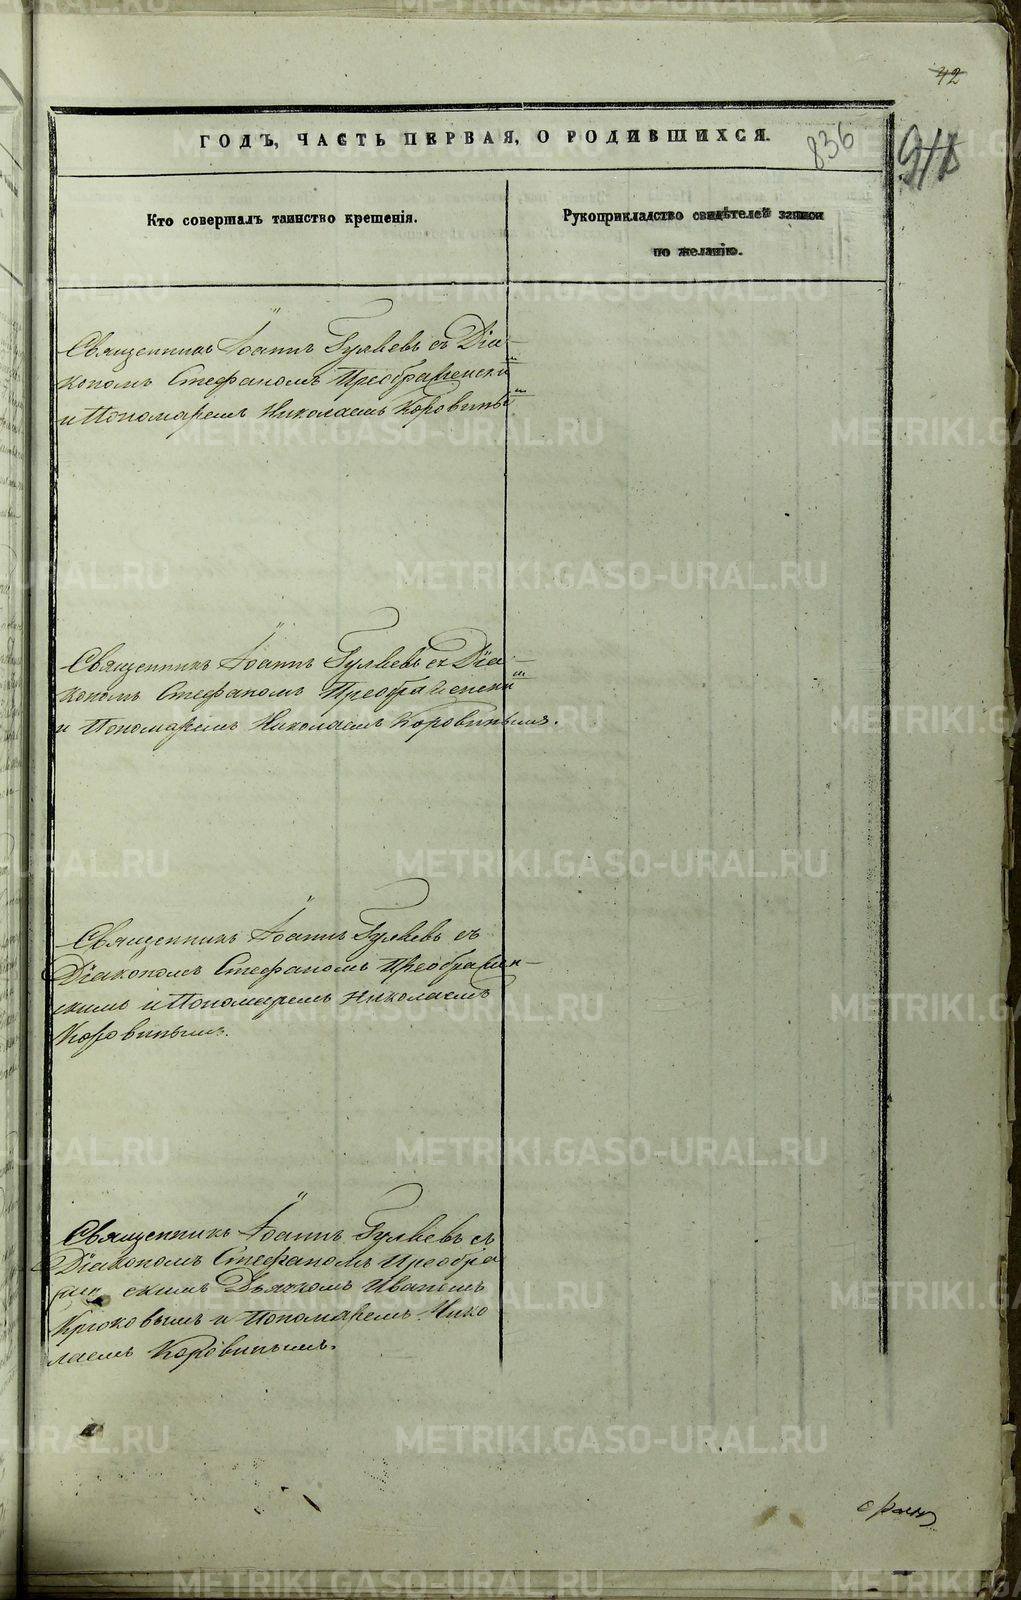 42
ГОДЪ, ЧАСТЬ ПЕРВАЯ, О РОДИВШИХСЯ.
836
Кто совершалъ таинство крещенія.
Рукоприкладство свидѣтелей записи
по желанію.
Священникъ Іоаннъ Гуляевъ съ Діа-
кономъ Стефаномъ Преображенски
и Пономаремъ Николаемъ Коровины
Священникъ Іоаннъ Гуляевъ съ Діа-
кономъ Стефаномъ Преображенски
и Пономаремъ Николаемъ Коровинымъ.
Священникъ Іоаннъ Гуляевъ съ
Діакономъ Стефаномъ Преображен-
скимъ и Пономаремъ Николаемъ
Коровинымъ.
Священникъ Іоаннъ Гуляевъ съ
Діакономъ Стефаномъ Преобра
жен скимъ Дьячкомъ Иваномъ
Крюковымъ и Пономаремъ Нико
лаемъ Коровинымъ.
METRIKI.GASO-URAL.RU